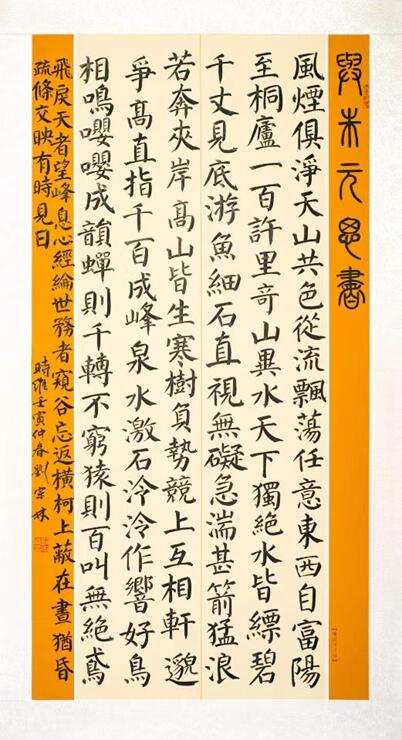 與朱元思書
風煙俱淨天山共色從流飄蕩任意東西自富陽
至桐廬一百許里奇山異水天下獨絕水皆縹碧
千丈見底游魚細石直視無礙急湍甚箭猛浪
若奔夾岸高山皆生寒樹負勢競上互相軒邈
爭高直指千百成峰泉水激石泠泠作響好鳥
相鳴嚶嚶成韻蟬則千轉不窮猿則百叫無絕鳶
飛戾天者望峰息心經綸世務者窺谷忘返橫柯上蔽在晝猶昏
疏條交映有時見日
時維壬寅仲春劉宗林